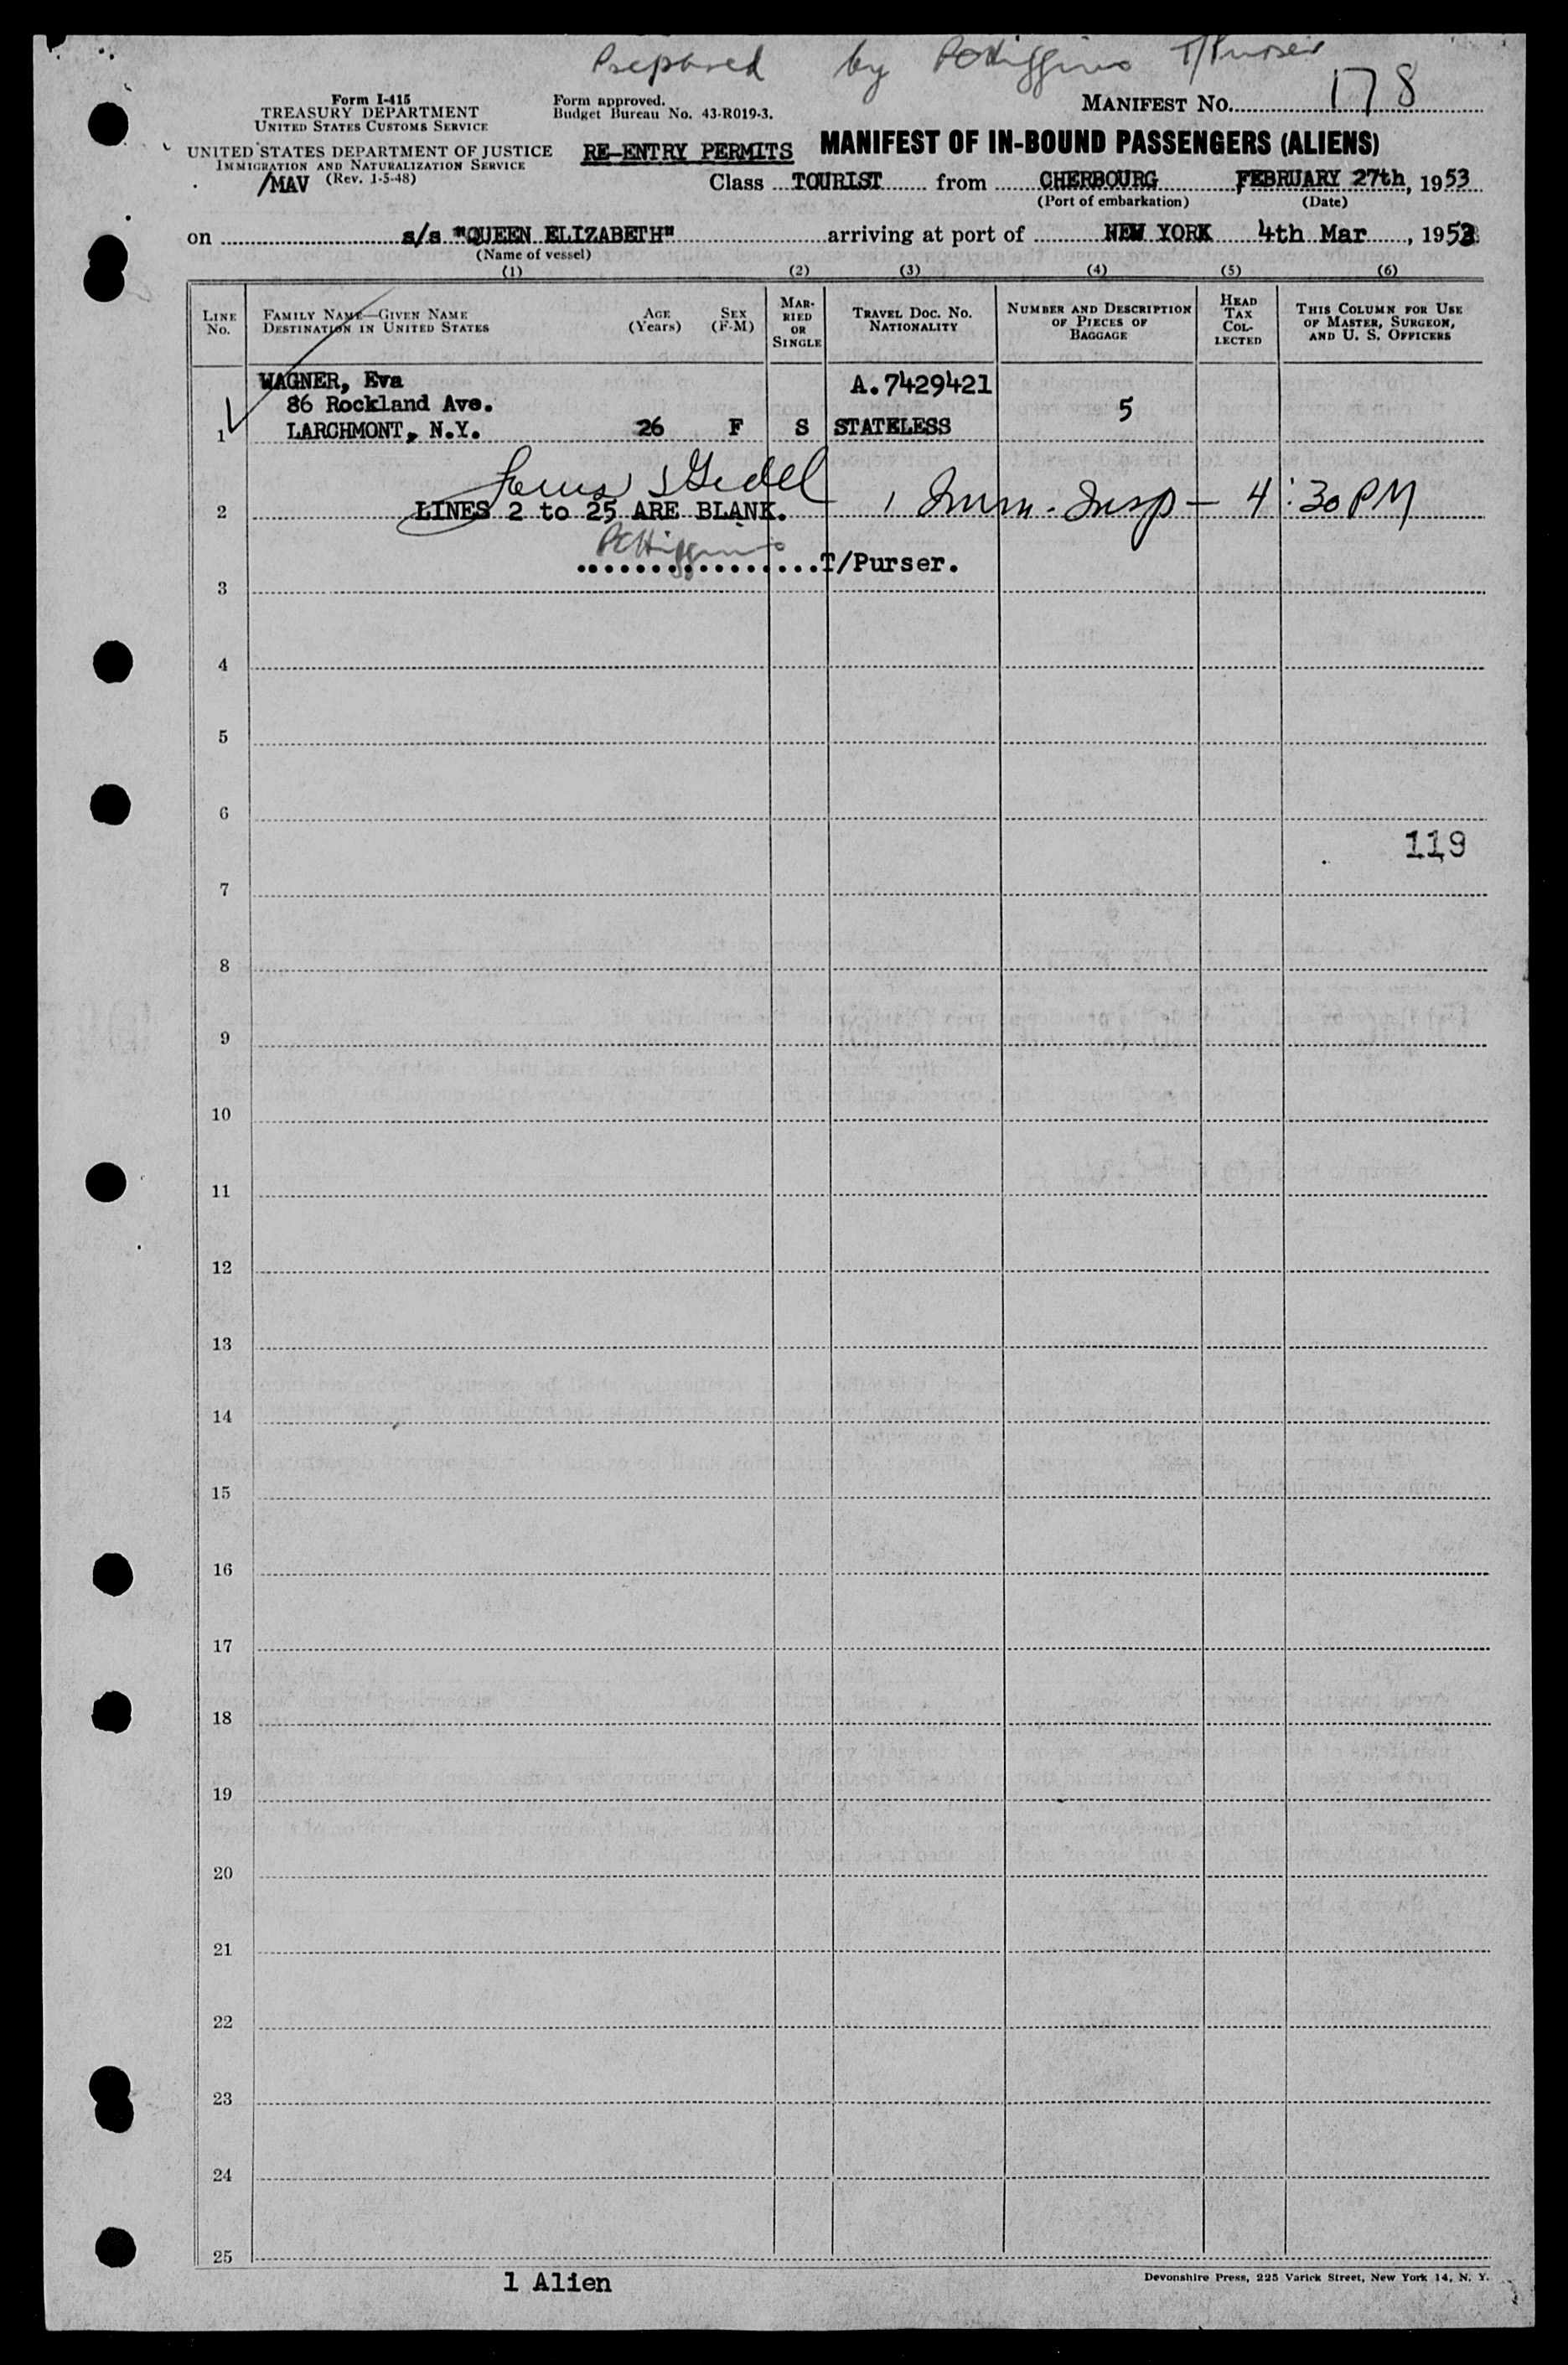 Prepared by PCHiggins T/Purser
Form I-415
TREASURY DEPARTMENT
UNITED STATES CUSTOMS SERVICE
Form approved.
Budget Bureau No. 43-R019-3.
MANIFEST No. 178
UNITED STATES DEPARTMENT OF JUSTICE
IMMIGRATION AND NATURALIZATION SERVICE
/MAV (Rev. 1-5-48)
RE-ENTRY PERMITS MANIFEST OF IN-BOUND PASSENGERS (ALIENS)
Class TOURIST from CHERBOURG, FEBRUARY 27th, 1953
(Port of embarkation) (Date)
on s/s "QUEEN ELIZABETH" arriving at port of NEW YORK 4th Mar, 1953
(Name of vessel)
(1) (2) (3) (4) (5) (6)
LINE No.
FAMILY NAME—GIVEN NAME
DESTINATION IN UNITED STATES
AGE (Years)
SEX (F-M)
MARRIED OR SINGLE
TRAVEL DOC. NO. NATIONALITY
NUMBER AND DESCRIPTION OF PIECES OF BAGGAGE
HEAD TAX COLLECTED
THIS COLUMN FOR USE OF MASTER, SURGEON, AND U. S. OFFICERS
WAGNER, Eva A.7429421
86 Rockland Ave. 5
1 LARCHMONT, N.Y. 26 F S STATELESS
2 LINES 2 to 25 ARE BLANK. Imm. Insp — 4:30 PM
PCHiggins T/Purser.
3
4
5
6
119
7
8
9
10
11
12
13
14
15
16
17
18
19
20
21
22
23
24
25
1 Alien
Devonshire Press, 225 Varick Street, New York 14, N. Y.